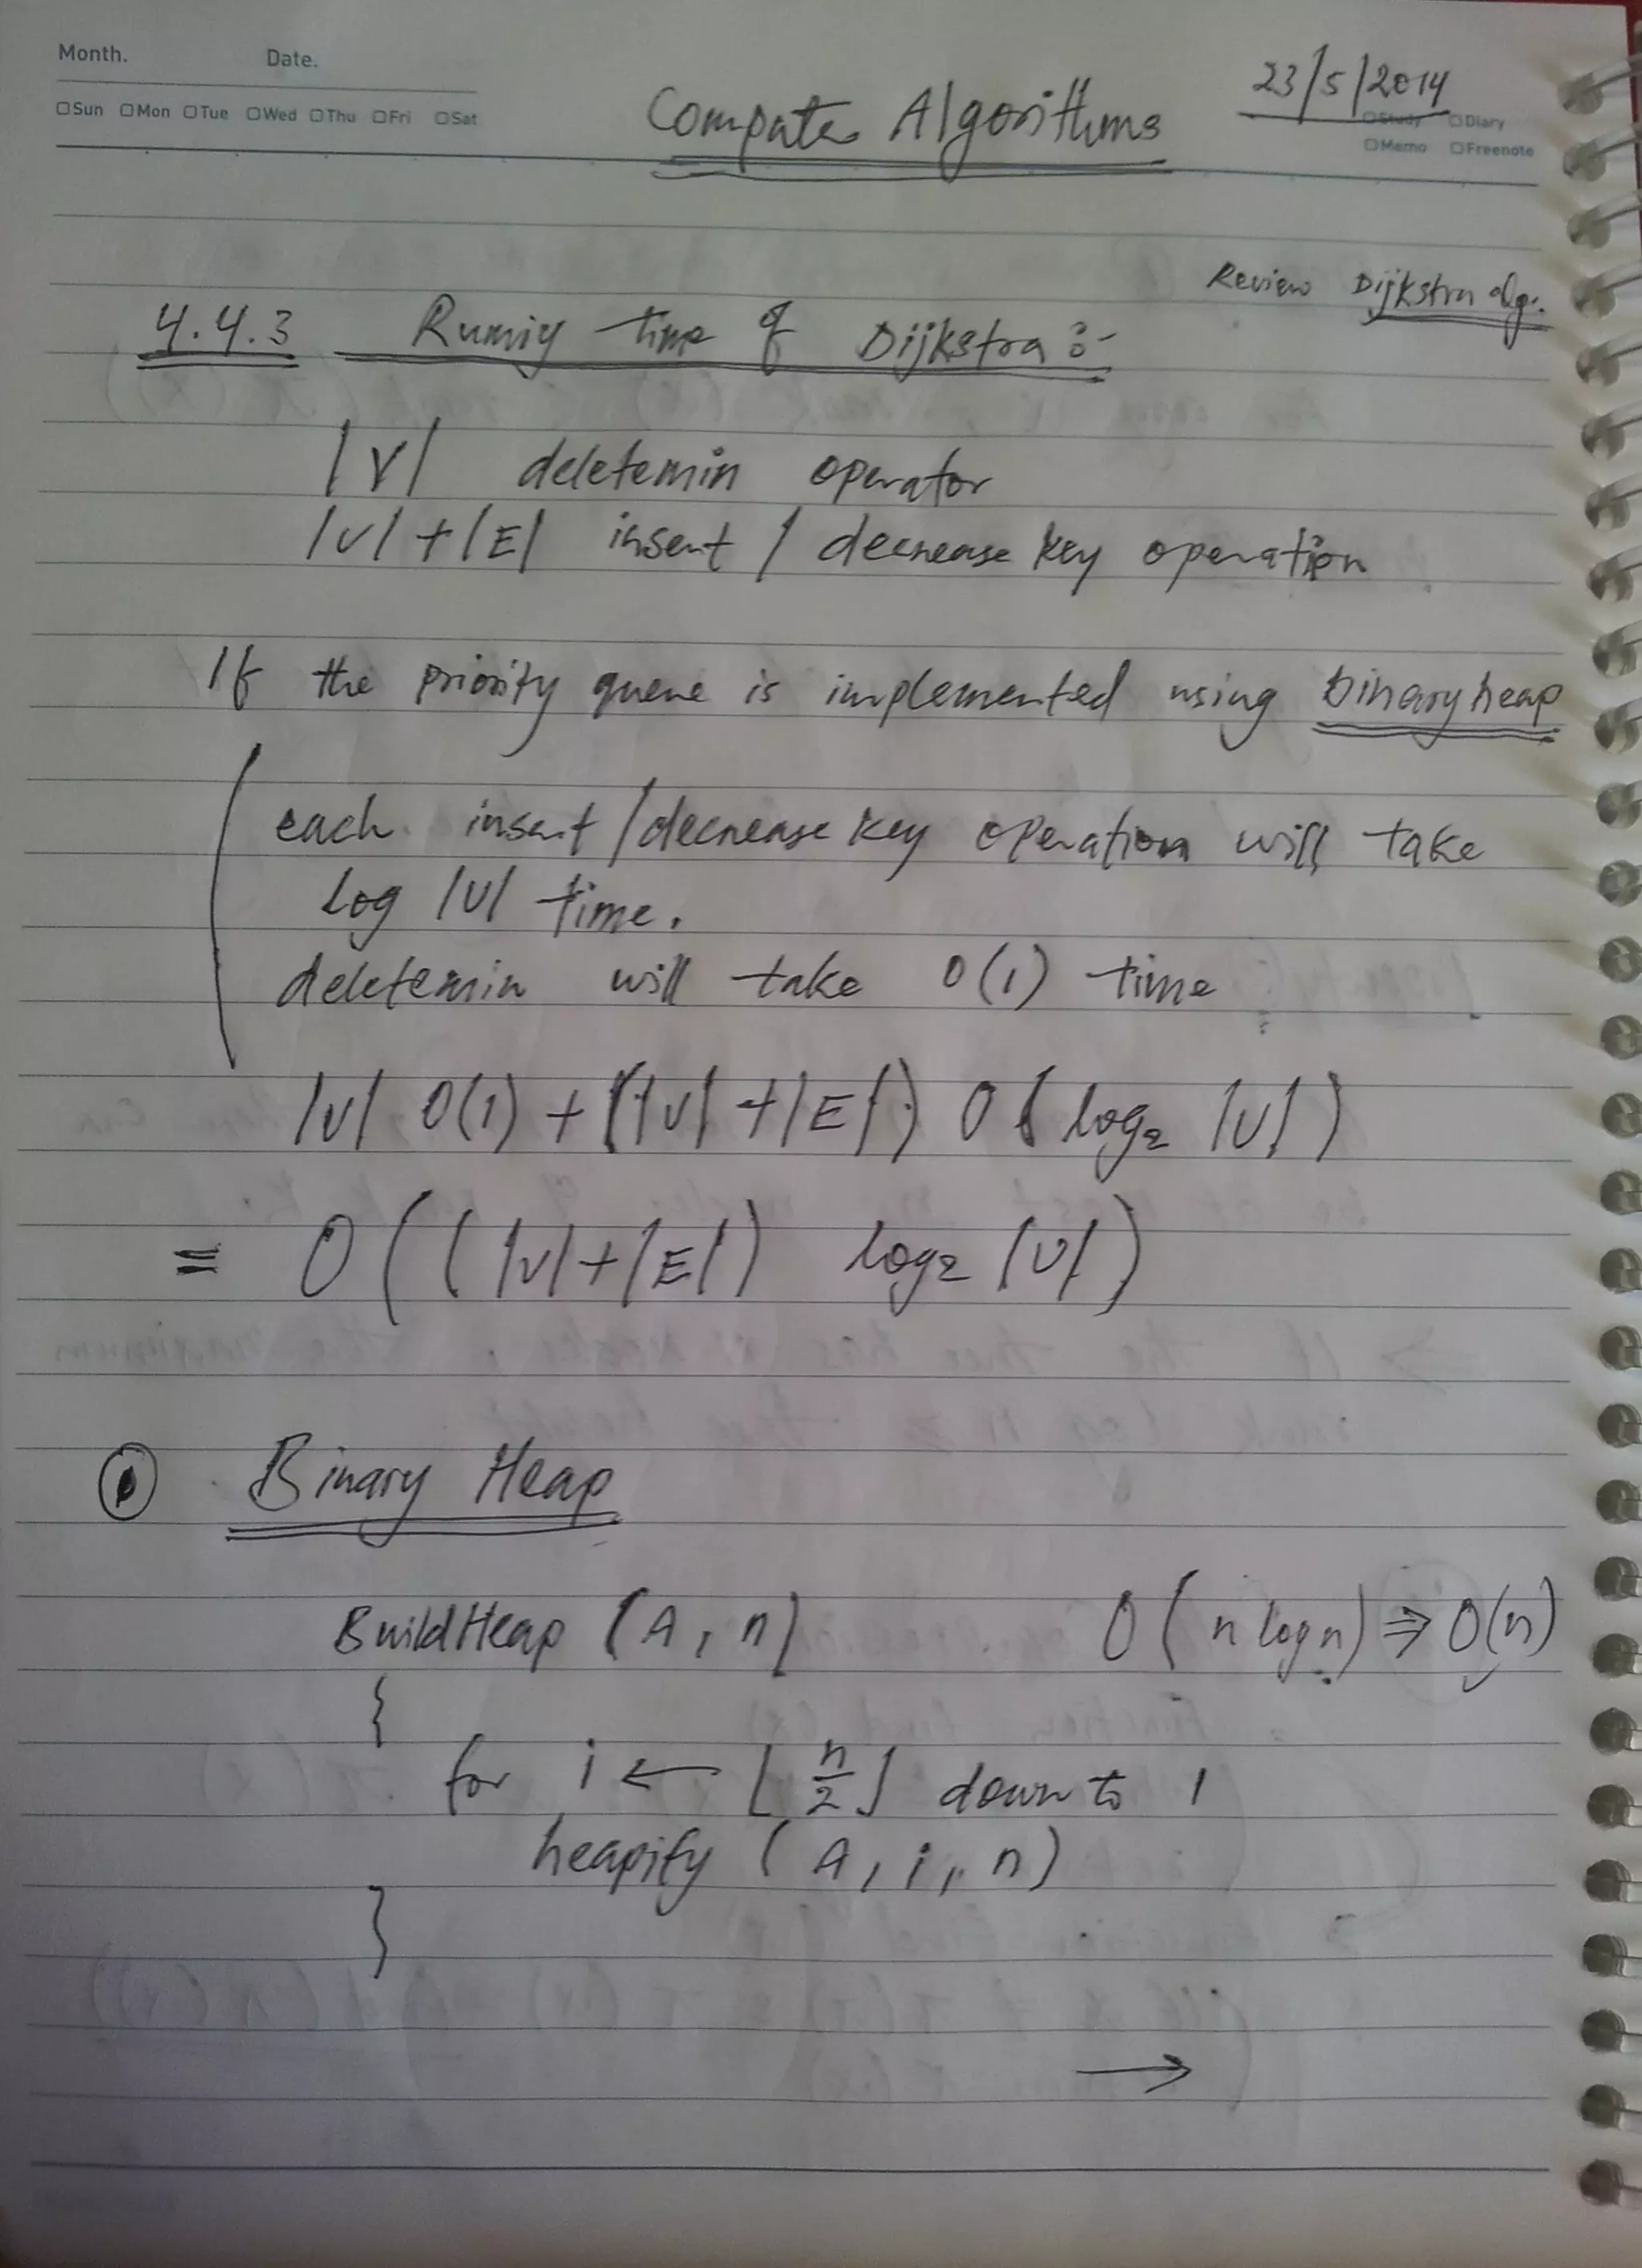 Month. Date.
☐Sun ☐Mon ☐Tue ☐Wed ☐Thu ☐Fri ☐Sat
Computer Algorithms
23/5/2014
☐Study ☐Diary
☐Memo ☐Freenote
Review Dijkstra alg.
4.4.3 Runnig time of Dijkstra :-
|V| deletemin operator
|V| + |E| insert / decrease key operation
If the priority queue is implemented using binary heap
each insert / decrease key operation will take
log |V| time.
deletemin will take O(1) time
|V| O(1) + (|V| + |E|) O ( log₂ |V| )
= O ( ( |V| + |E| ) log₂ |V| )
Binary Heap
BuildHeap (A, n) O ( n log n ) ⇒ O(n)
{
for i ← ⌊n/2⌋ down to 1
heapify (A, i, n)
}
→